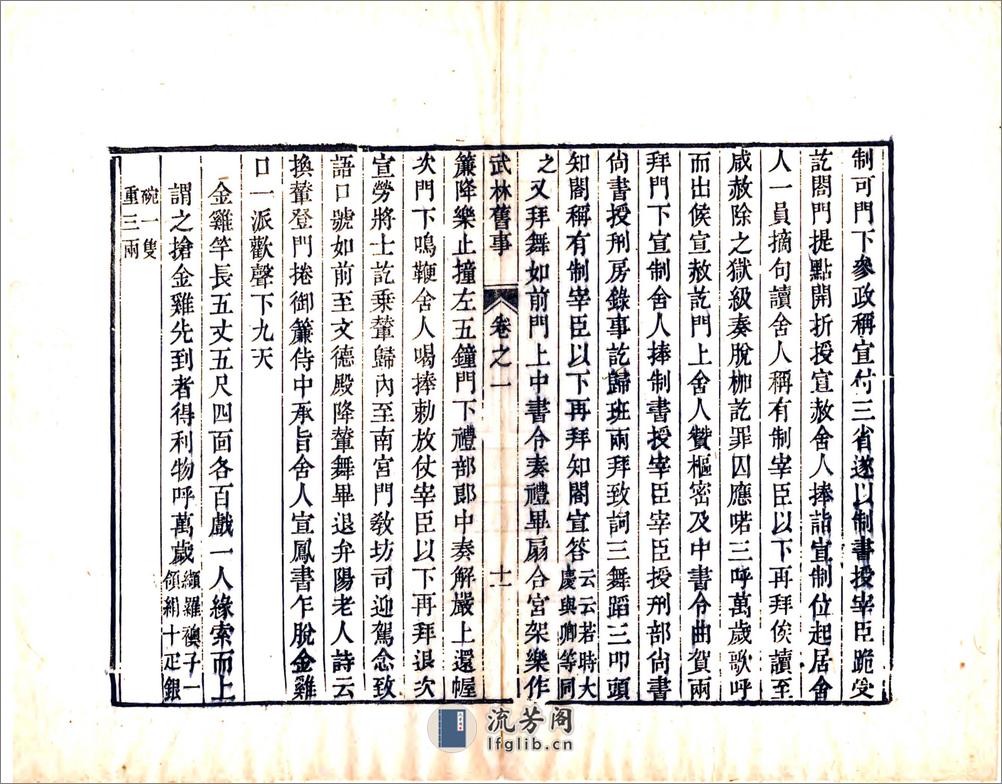 制可門下參政稱宣付三省遂以制書授宰臣跪受
訖閤門提點開折授宣赦舍人捧詣宣制位起居舍
人一員摘句讀舍人稱有制宰臣以下再拜俟讀至
咸赦除之獄級奏脫枷訖罪囚應喏三呼萬歲歌呼
而出候宣赦訖門上舍人贊樞密及中書令曲賀兩
拜門下宣制舍人捧制書授宰臣宰臣授刑部尚書
尚書授刑房錄事訖歸班兩拜致詞三舞蹈三叩頭
知閤稱有制宰臣以下再拜知閤宣答云云若時大慶與卿等同
之又拜舞如前門上中書令奏禮畢扇合宮架樂作
武林舊事 卷之一 十一
簾降樂止撞左五鐘門下禮部郎中奏解嚴上還幄
次門下鳴鞭舍人喝捧勅放仗宰臣以下再拜退次
宣勞將士訖乘輦歸內至南宮門教坊司迎駕念致
語口號如前至文德殿降輦舞畢退弁陽老人詩云
換輦登門捲御簾侍中承旨舍人宣鳳書乍脫金雞
口一派歡聲下九天
金雞竿長五丈五尺四面各百戲一人緣索而上
謂之搶金雞先到者得利物呼萬歲纈羅襖子一領絹十疋銀
碗一隻重三兩
流芳阁
lfglib.cn